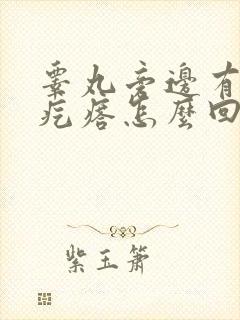 睾丸旁边有
疙瘩怎么回
紫玉箫